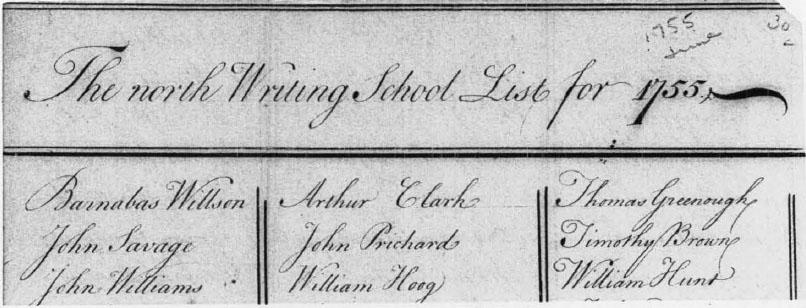 1755
June
30
The north Writing School List for 1755
Barnabas Willson
John Savage
John Williams
Arthur Clark
John Prichard
William Hoog
Thomas Greenough
Timothy Brown
William Hunt